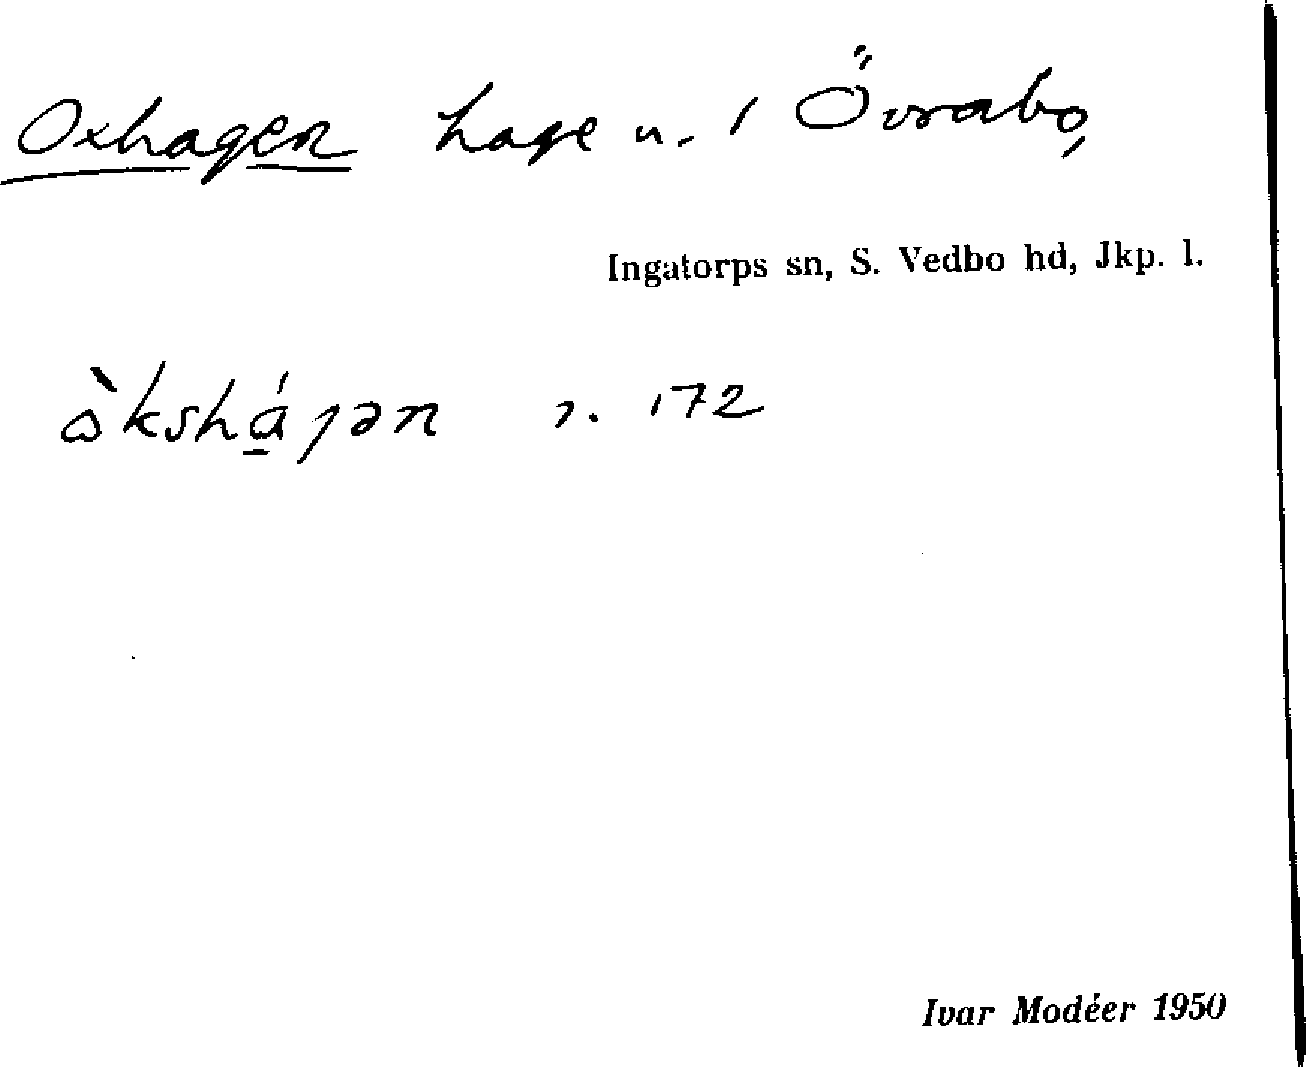 Oxhagen hage u. / Övrabo,
Ingatorps sn, S. Vedbo hd, Jkp. l.
172
Ivar Modéer 1950